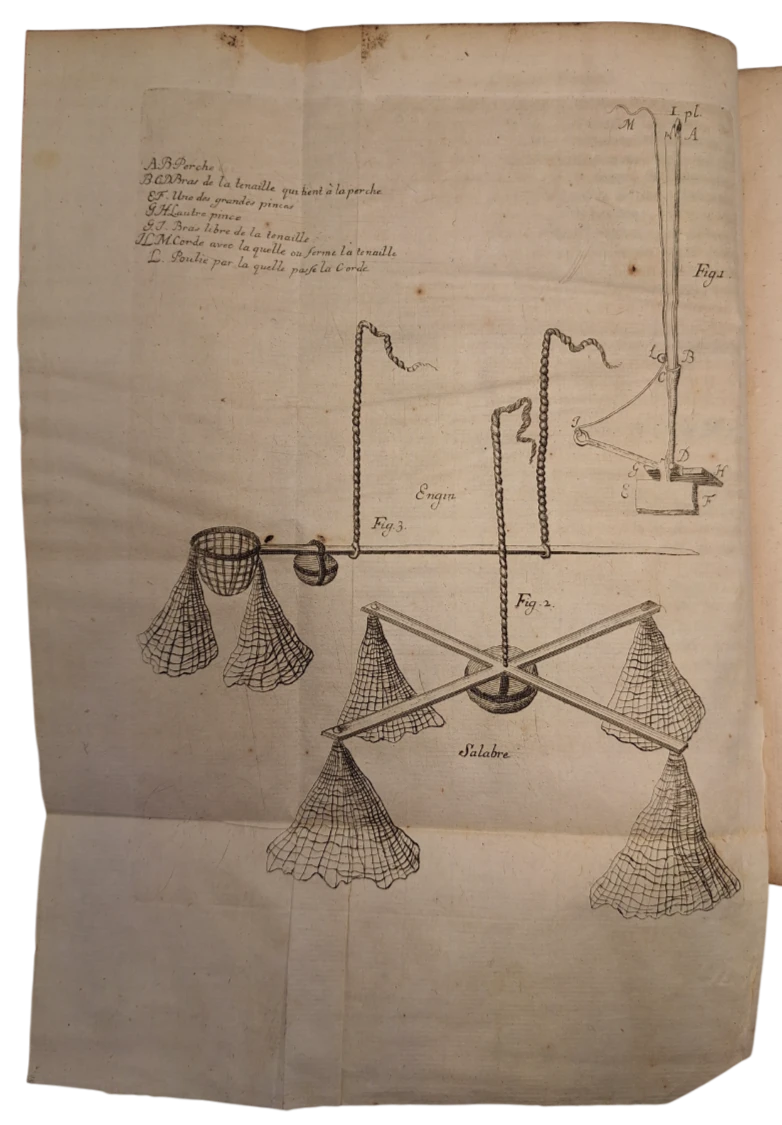 I. pl.
M
N A
A.B Perche
B.C.D Bras de la tenaille qui tient à la perche
E.F. Une des grandes pinces
G.H. Lautre pince
G.I. Bras libre de la tenaille
I.L.M. Corde avec la quelle on ferme la tenaille
L. Poulie par la quelle passe la Corde
Fig.1.
L B
C
I
D
G H
E F
Engin
Fig.3.
Fig.2.
Salabre